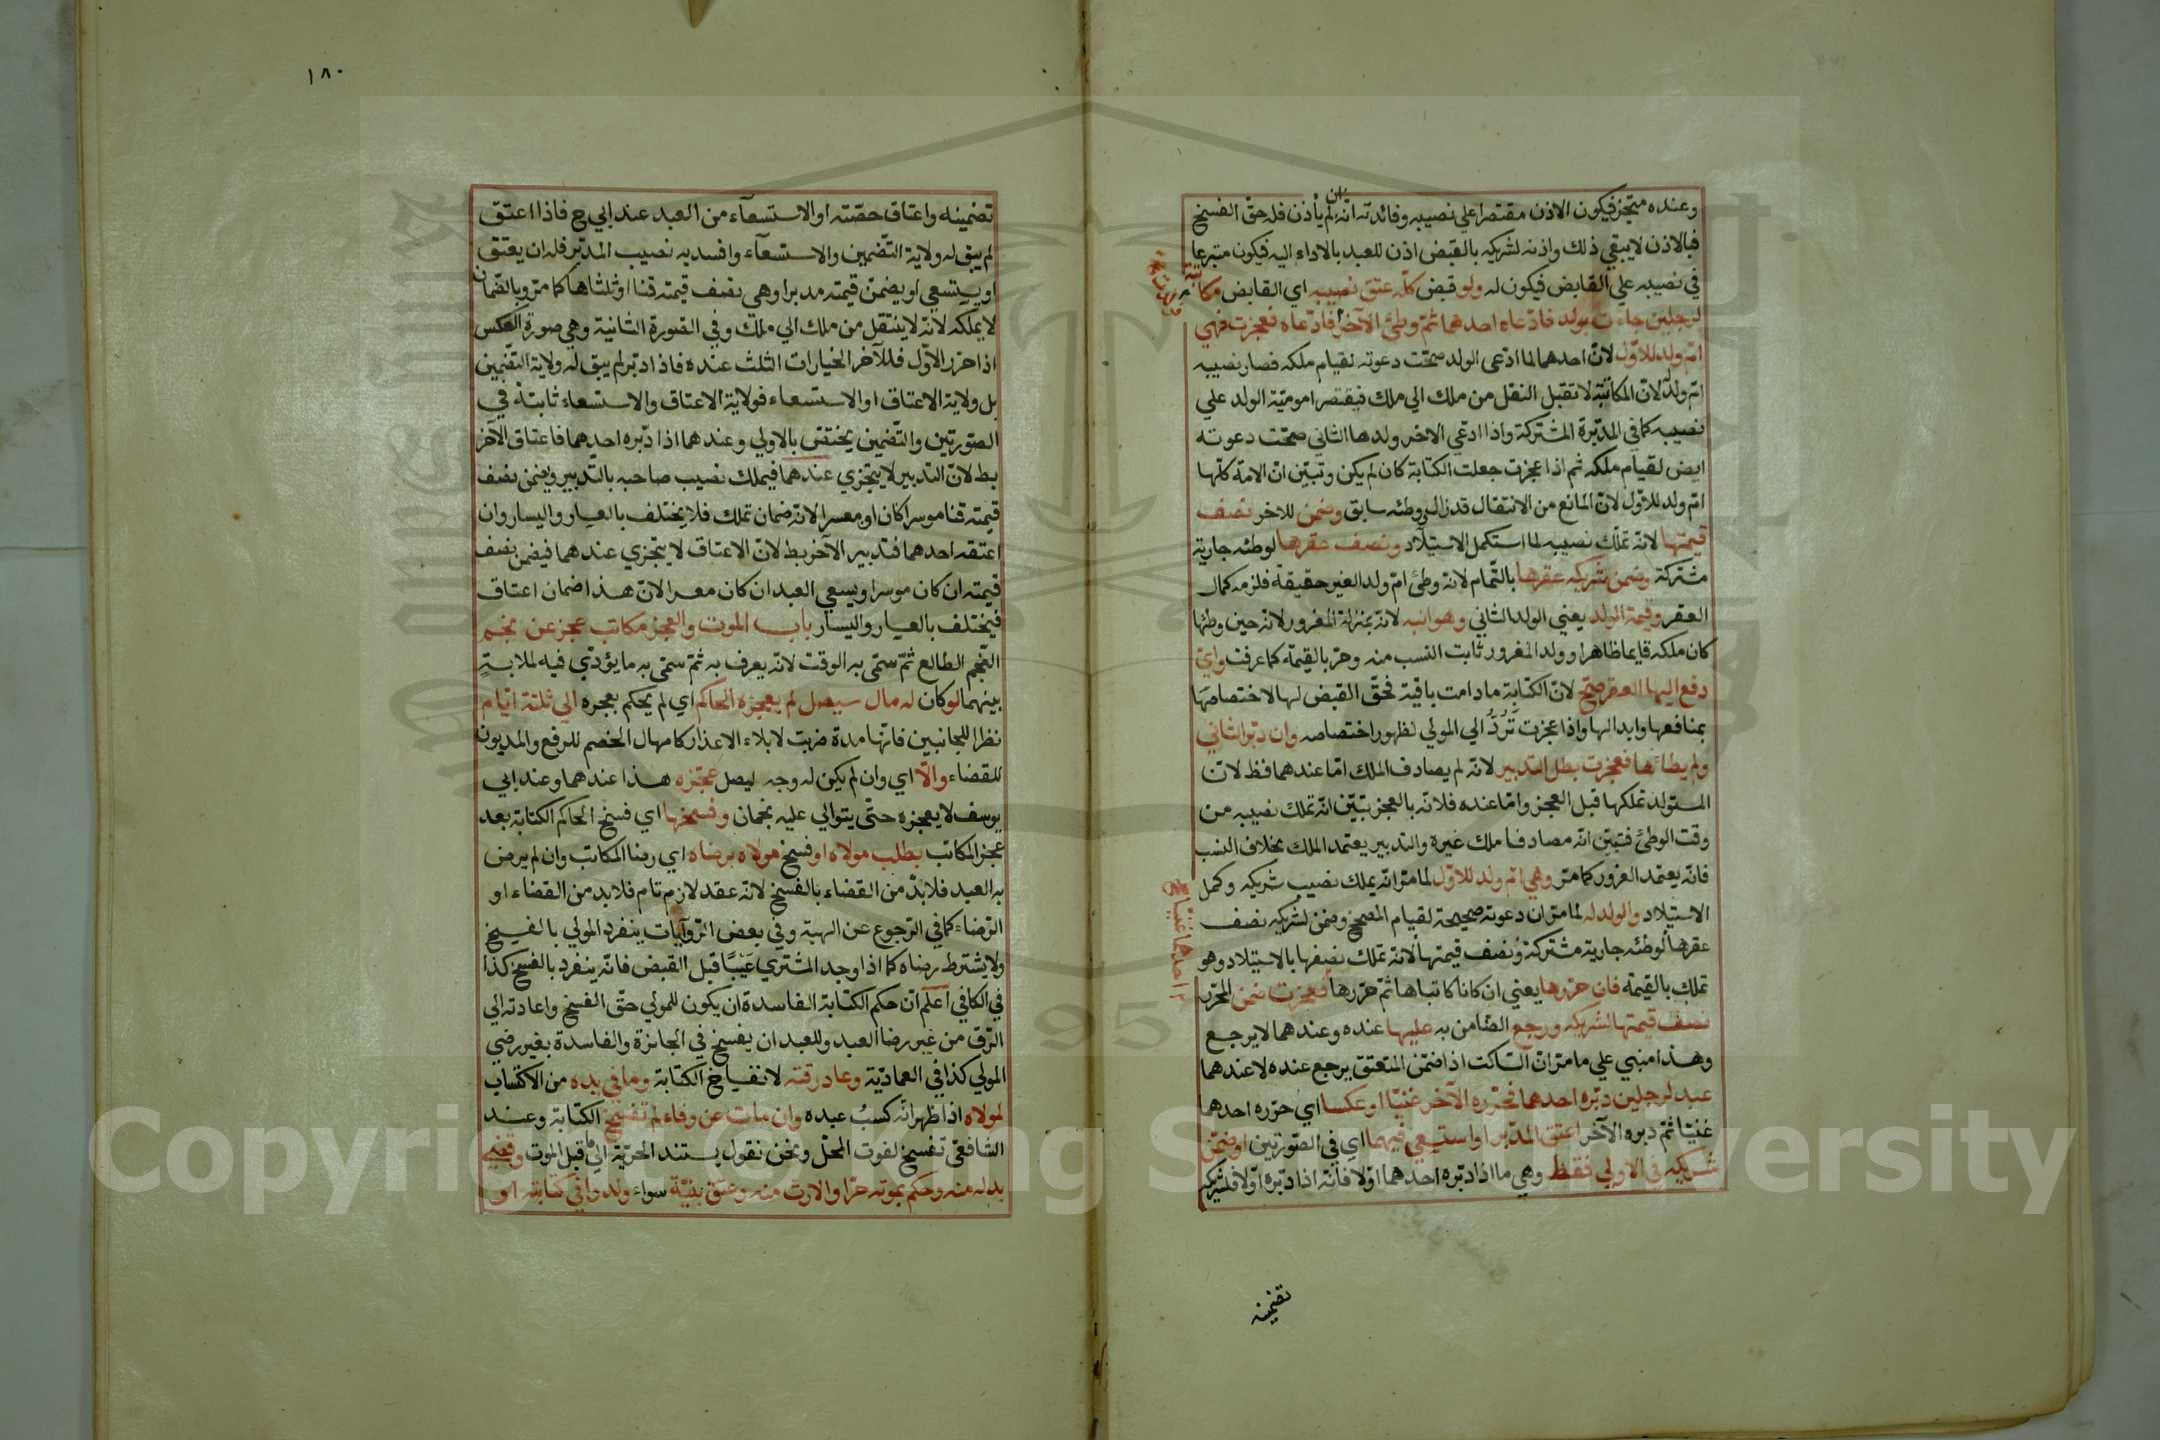 وعنده متجز فيكون الاذن مقتصرا علي نصيبه وفائدته انه ان لم يأذن فله حق الفسخ
فبالاذن لا يبقي ذلك واذنه لشريكه بالقبض اذن للعبد بالاداء اليه فيكون متبرعا
في نصيبه علي القابض فيكون له ولو قبض كله عتق نصيبه اي القابض مكاتبة
لرجلين جاءت بولد فادعاه احدهما ثم وطئ الآخر فادعاه فعجزت فهي
ام ولد للاول لان احدهما لما ادعى الولد صحت دعوته لقيام ملكه فصار نصيبه
ام ولد له لان المكاتبة لا تقبل النقل من ملك الي ملك فيقتصر امومية الولد علي
نصيبه كما في المدبرة المشتركة واذا ادعي الاخر ولدها الثاني صحت دعوته
ايض لقيام ملكه ثم اذا عجزت جعلت الكتابة كان لم يكن وتبين ان الامة كلها
ام ولد للاول لان المانع من الانتقال قد زال ووطئه سابق وضمن للاخر نصف
قيمتها لانه تملك نصيبه لما استكمل الاستيلاد ونصف عقرها لوطئه جارية
مشتركة وضمن شريكه عقرها بالتمام لانه وطئ ام ولد الغير حقيقة فلزمه كمال
العقر وقيمة الولد يعني الولد الثاني وهو ابنه لانه بمنزلة المغرور لانه حين وطئها
كان ملكه قايما ظاهرا وولد المغرور ثابت النسب منه وحر بالقيمة كما عرفت واي
دفع اليها العقر صح لان الكتابة ما دامت باقية فحق القبض لها لاختصاصها
بمنافعها وابدالها واذا عجزت ترد الي المولي لظهور اختصاصه وان دبر الثاني
ولم يطأها فعجزت بطل التدبير لانه لم يصادف الملك اما عندهما فظ لان
المستولد تملكها قبل العجز واما عنده فلانه بالعجز تبين انه تملك نصيبه من
وقت الوطئ فتبين انه مصادف ملك غيره والتدبير يعتمد الملك بخلاف النسب
فانه يعتمد الغرور كما مر وهي ام ولد للاول لما مر انه يملك نصيب شريكه وكمل
الاستيلاد والولد له لما مر ان دعوته صحيحة لقيام المصحح وضمن لشريكه نصف
عقرها لوطئه جارية مشتركة ونصف قيمتها لانه تملك نصفها بالاستيلاد وهو
تملك بالقيمة فان حررها يعني ان كانا كاتباها ثم حررها فعجزت ضمن المحرر
احدهما غنيا
نصف قيمتها لشريكه ورجع الضامن به عليها عنده وعندهما لا يرجع
وهذا مبني علي ما مر ان الساكت اذا ضمن المتعتق يرجع عنده لا عندهما
عبد لرجلين دبره احدهما فحرره الآخر غنيا او عكسا اي حرره احدهما
غنيا ثم دبره الآخر اعتق المدبر او استسعي فيهما اي في الصورتين او ضمن
شريكه في الاولي فقط وهي ما اذا دبره احدهما اولا فانه اذا دبره اولا فلشريكه
تضمينه
١٨٠
تضمينه واعتاق حصته او الاستسعآء من العبد عند ابي ح فاذا اعتق
لم يبق له ولاية التضمين والاستسعآء وافسد به نصيب المدبر فله ان يعتق
او يستسعي او يضمن قيمته مدبرا وهي نصف قيمته قنا او ثلثاها كما مر وبالضمان
لا يملكه لانه لا ينتقل من ملك الي ملك وفي الصورة الثانية وهي صورة العكس
اذا حرر الاول فللآخر الخيارات الثلث عنده فاذا دبر لم يبق له ولاية التضمين
بل ولاية الاعتاق او الاستسعاء فولاية الاعتاق والاستسعاء ثابتة في
الصورتين والتضمين يختص بالاولي وعندهما اذا دبره احدهما فاعتاق الآخر
بط لان التدبير لا يتجزي عندهما فيملك نصيب صاحبه بالتدبير ويضمن نصف
قيمته قنا موسرا كان او معسرا لانه ضمان تملك فلا يختلف بالعسار واليسار وان
اعتقه احدهما فتدبير الآخر بط لان الاعتاق لا يتجزي عندهما فيضمن نصف
قيمته ان كان موسرا ويسعي العبد ان كان معسرا لان هذا ضمان اعتاق
فيختلف بالعسار واليسار باب الموت والعجز مكاتب عجز عن نجم
النجم الطالع ثم سمي به الوقت لانه يعرف به ثم سمي به ما يؤدي فيه لملابسة
بينهما لو كان له مال سيصل لم يعجزه الحاكم اي لم يحكم بعجزه الي ثلثة ايام
نظرا للجانبين فانها مدة ضربت لابلاء الاعذار كامهال الخصم للرفع والمديون
للقضاء والا اي وان لم يكن له وجه ليصل عجزه هذا عندهما وعند ابي
يوسف لا يعجزه حتي يتوالي عليه نجمان وفسخها اي فسخ الحاكم الكتابة بعد
عجز المكاتب بطلب مولاه او فسخ مولاه برضاه اي رضا المكاتب وان لم يرض
به العبد فلا بد من القضاء بالفسخ لانه عقد لازم تام فلا بد من القضاء او
الرضاء كما في الرجوع عن الهبة وفي بعض الروايات ينفرد المولي بالفسخ
ولا يشترط رضاه كما اذا وجد المشتري عيبا قبل القبض فانه ينفرد بالفسخ كذا
في الكافي اعلم ان حكم الكتابة الفاسدة ان يكون للمولي حق الفسخ واعادته الي
الرق من غير رضا العبد وللعبد ان يفسخ في الجائزة والفاسدة بغير رضي
المولي كذا في العمادية وعاد رقه لانفساخ الكتابة وما في يده من الاكتساب
لمولاه اذا ظهر انه كسب عبده وان مات عن وفاء لم تفسخ الكتابة وعند
الشافعي تفسخ لفوت المحل ونحن نقول يستند الحرية الي ما قبل الموت وقضي
بدله منه وحكم بموته حرا والارث منه وعتق بنيه سواء ولدوا في كتابته او